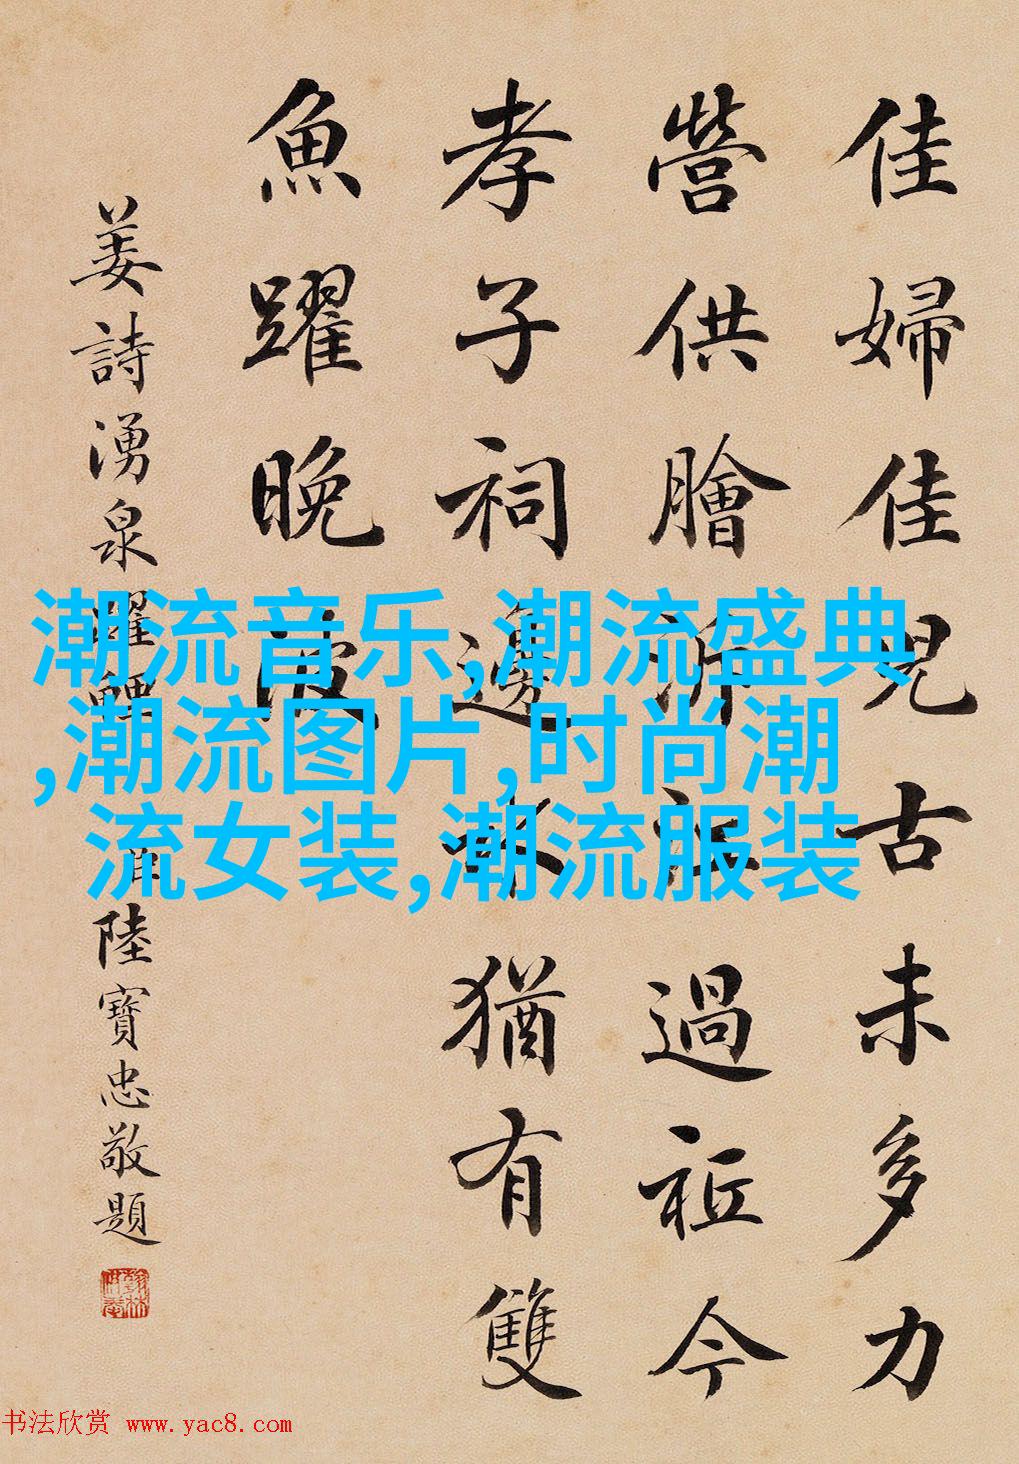 佳婦佳兒古未多力
營供膾泝江過祗今
孝子祠邊水猶有雙
魚躍晚波
姜詩湧泉躍鯉
陸寶忠敬題
潮流音乐,潮流盛典
,潮流图片,时尚潮
流女装,潮流服装
书法欣赏 www.yac8.com